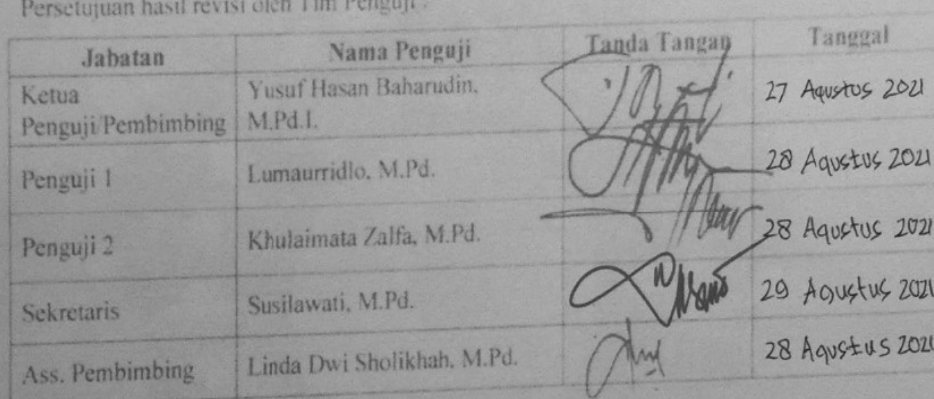 Persetujuan hasil revisi oleh Tim Penguji :
Jabatan Nama Penguji Tanda Tangan Tanggal
Ketua Penguji/Pembimbing Yusuf Hasan Baharudin, M.Pd.I. 27 Agustus 2021
Penguji 1 Lumaurridlo, M.Pd. 28 Agustus 2021
Penguji 2 Khulaimata Zalfa, M.Pd. 28 Agustus 2021
Sekretaris Susilawati, M.Pd. 29 Agustus 2021
Ass. Pembimbing Linda Dwi Sholikhah, M.Pd. 28 Agustus 2021